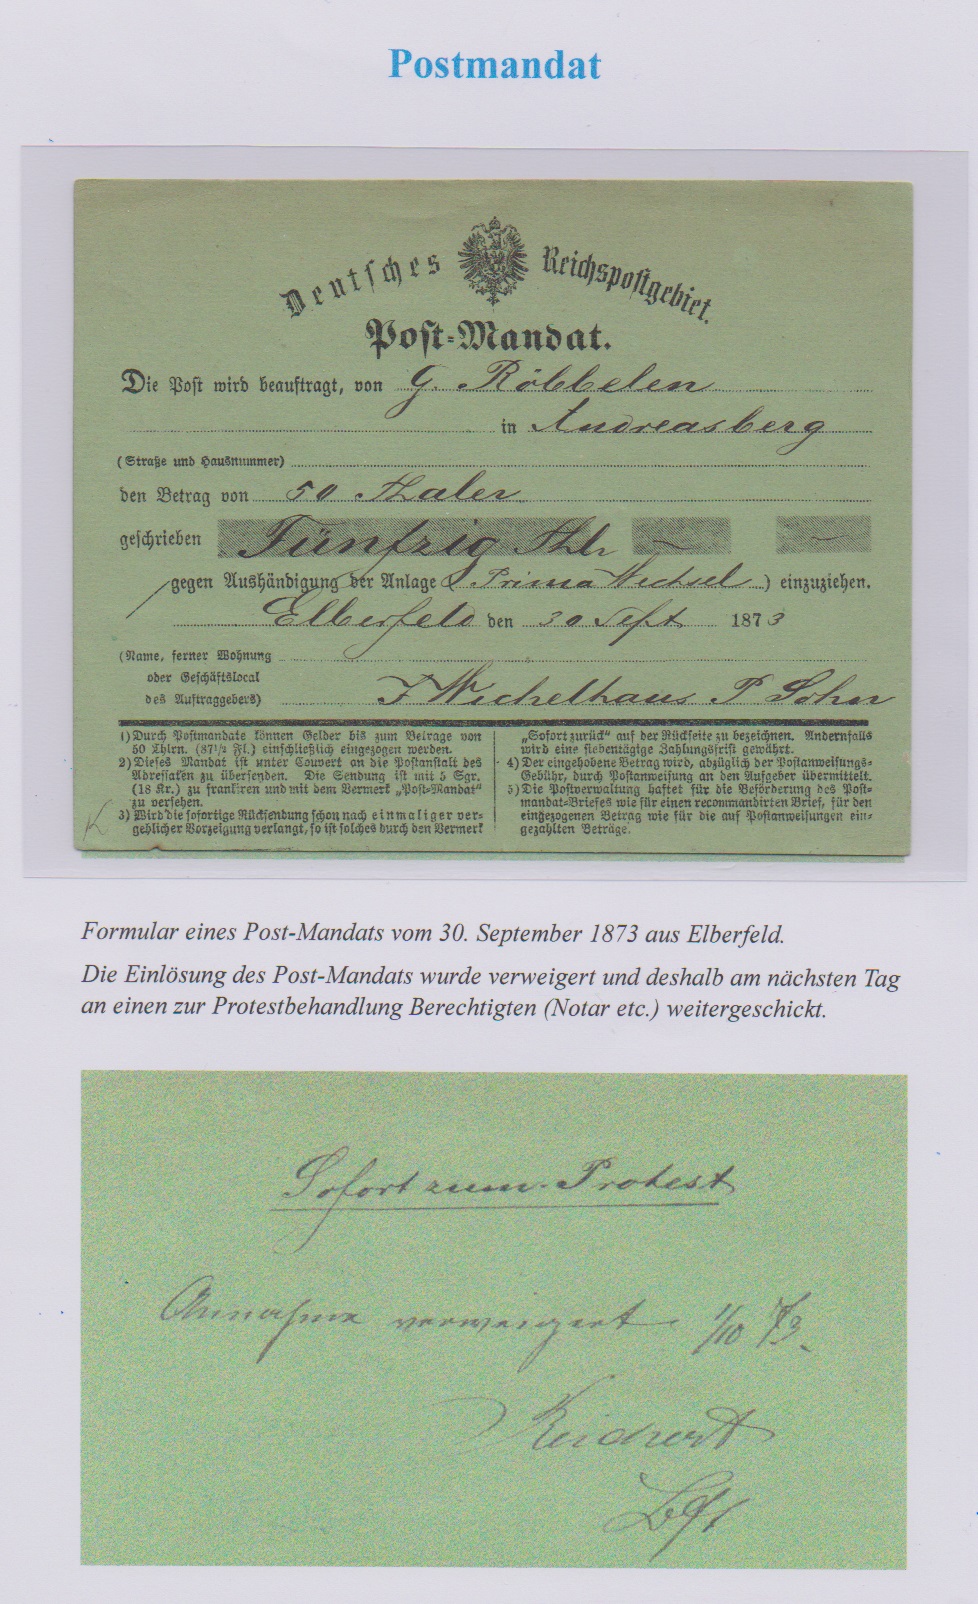 Postmandat
Deutsches Reichspostgebiet.
Post-Mandat.
Die Post wird beauftragt, von G. Röbbelen
in Andreasberg
(Straße und Hausnummer)
den Betrag von 50 Thaler
geschrieben Fünfzig Thlr — —
gegen Aushändigung der Anlage (Prima Wechsel) einzuziehen.
Elberfeld den 30 Sept 1873
(Name, ferner Wohnung
oder Geschäftslocal
des Auftraggebers) J Wichelhaus P Sohn
1) Durch Postmandate können Gelder bis zum Betrage von
50 Thlrn. (87½ Fl.) einschließlich eingezogen werden.
2) Dieses Mandat ist unter Couvert an die Postanstalt des
Adressaten zu übersenden. Die Sendung ist mit 5 Sgr.
(18 Kr.) zu frankiren und mit dem Vermerk „Post-Mandat"
zu versehen.
3) Wird die sofortige Rücksendung schon nach einmaliger ver-
geblicher Vorzeigung verlangt, so ist solches durch den Vermerk
„Sofort zurück" auf der Rückseite zu bezeichnen. Andernfalls
wird eine siebentägige Zahlungsfrist gewährt.
4) Der eingehobene Betrag wird, abzüglich der Postanweisungs-
Gebühr, durch Postanweisung an den Aufgeber übermittelt.
5) Die Postverwaltung haftet für die Beförderung des Post-
mandat-Briefes wie für einen recommandirten Brief, für den
eingezogenen Betrag wie für die auf Postanweisungen ein-
gezahlten Beträge.
Formular eines Post-Mandats vom 30. September 1873 aus Elberfeld.
Die Einlösung des Post-Mandats wurde verweigert und deshalb am nächsten Tag
an einen zur Protestbehandlung Berechtigten (Notar etc.) weitergeschickt.
Sofort zum Protest
Annahme verweigert 1/10 73.